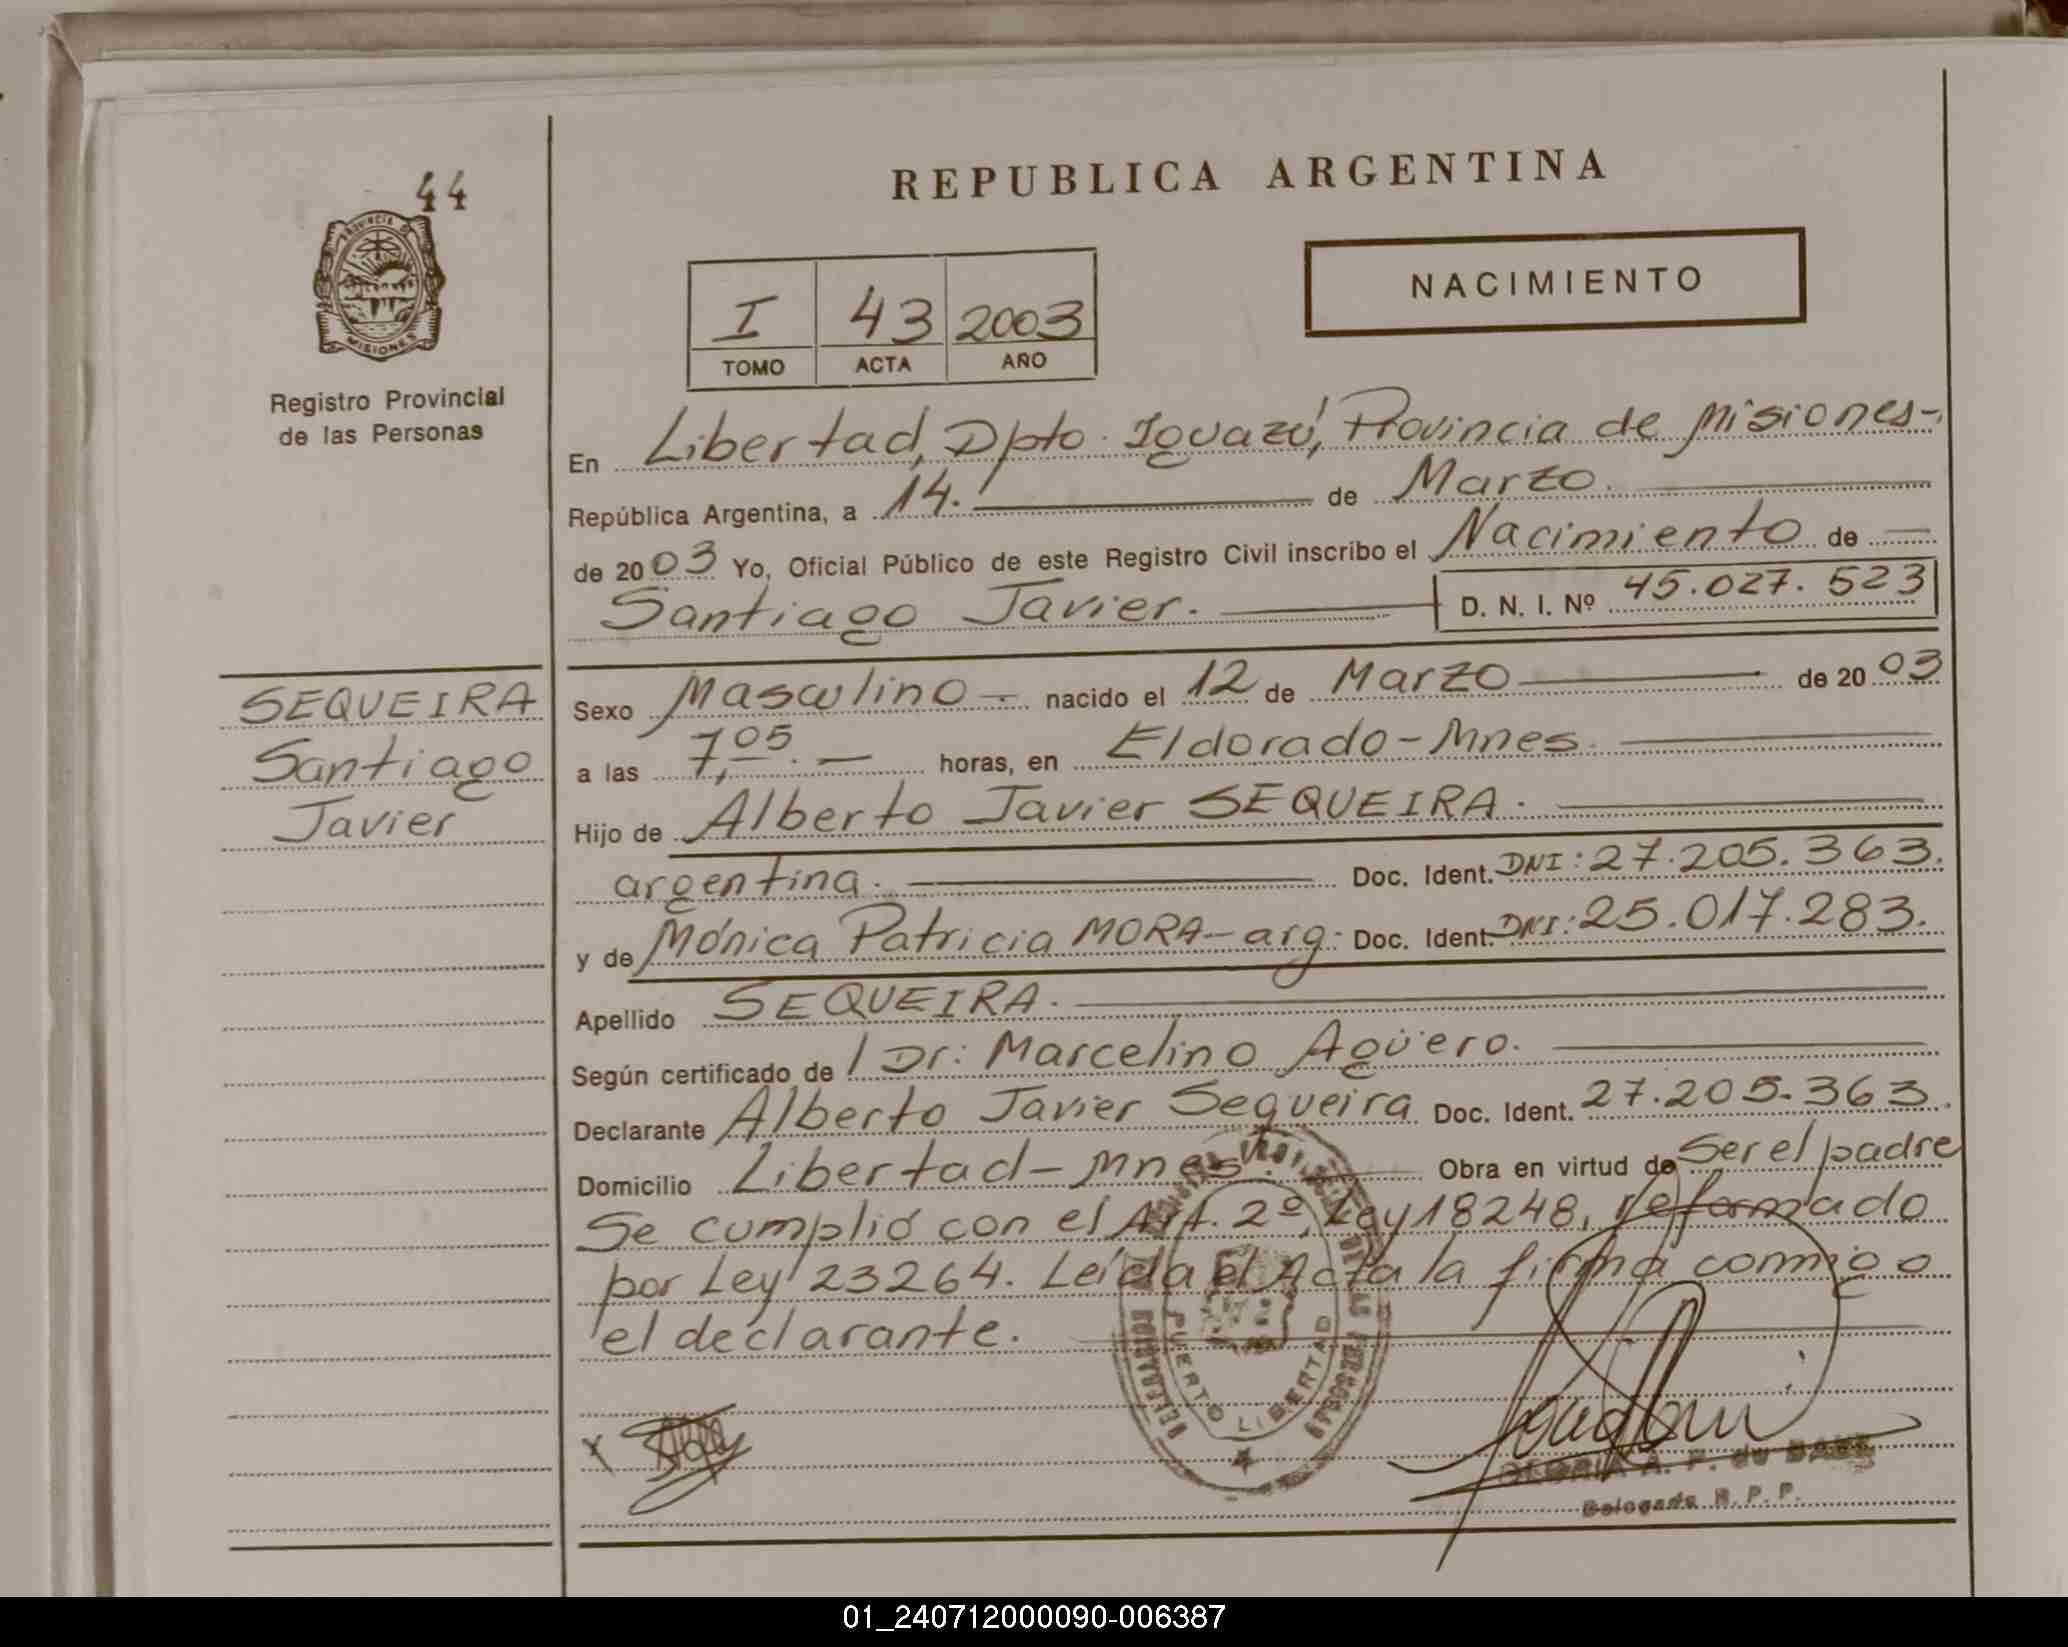 44
PROVINCIA DE
MISIONES
Registro Provincial
de las Personas
REPUBLICA ARGENTINA
I 43 2003
TOMO ACTA AÑO
NACIMIENTO
En Libertad, Dpto. Iguazú, Provincia de Misiones-.
República Argentina, a 14. de Marzo.
de 2003 Yo, Oficial Público de este Registro Civil inscribo el Nacimiento de
Santiago Javier. D. N. I. Nº 45.027.523
SEQUEIRA
Santiago
Javier
Sexo Masculino - nacido el 12 de Marzo de 2003
a las 7,05. horas, en Eldorado-Mnes.
Hijo de Alberto Javier SEQUEIRA.
argentina. Doc. Ident. DNI: 27.205.363.
y de Mónica Patricia MORA-arg. Doc. Ident. DNI: 25.017.283.
Apellido SEQUEIRA.
Según certificado de l Dr: Marcelino Agüero.
Declarante Alberto Javier Sequeira Doc. Ident. 27.205.363.
Domicilio Libertad-Mnes. Obra en virtud de Ser el padre
Se cumplió con el Art. 2º, Ley 18248, reformado
por Ley 23264. Leída el Acta la firma conmigo
el declarante.
PUERTO LIBERTAD
X
GLORIA A. F. de
Delegada R. P. P.
01_240712000090-006387